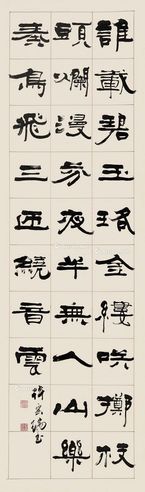 誰載碧玉珞金縷吹擲枝
頭爛漫芬夜半無人山樂
奏鳥飛三匝繞香雲